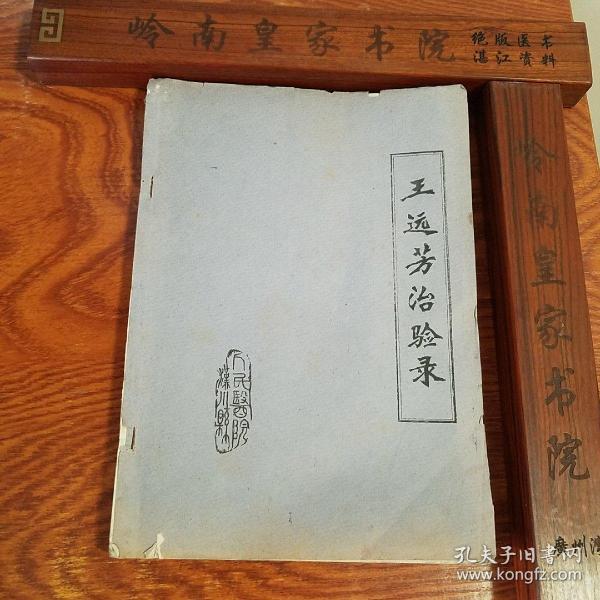 岭南皇家书院
绝版医书
湛江资料
王远芳治验录
人民醫院
岭南皇家书院
廣州灣
孔夫子旧书网
www.kongfz.com